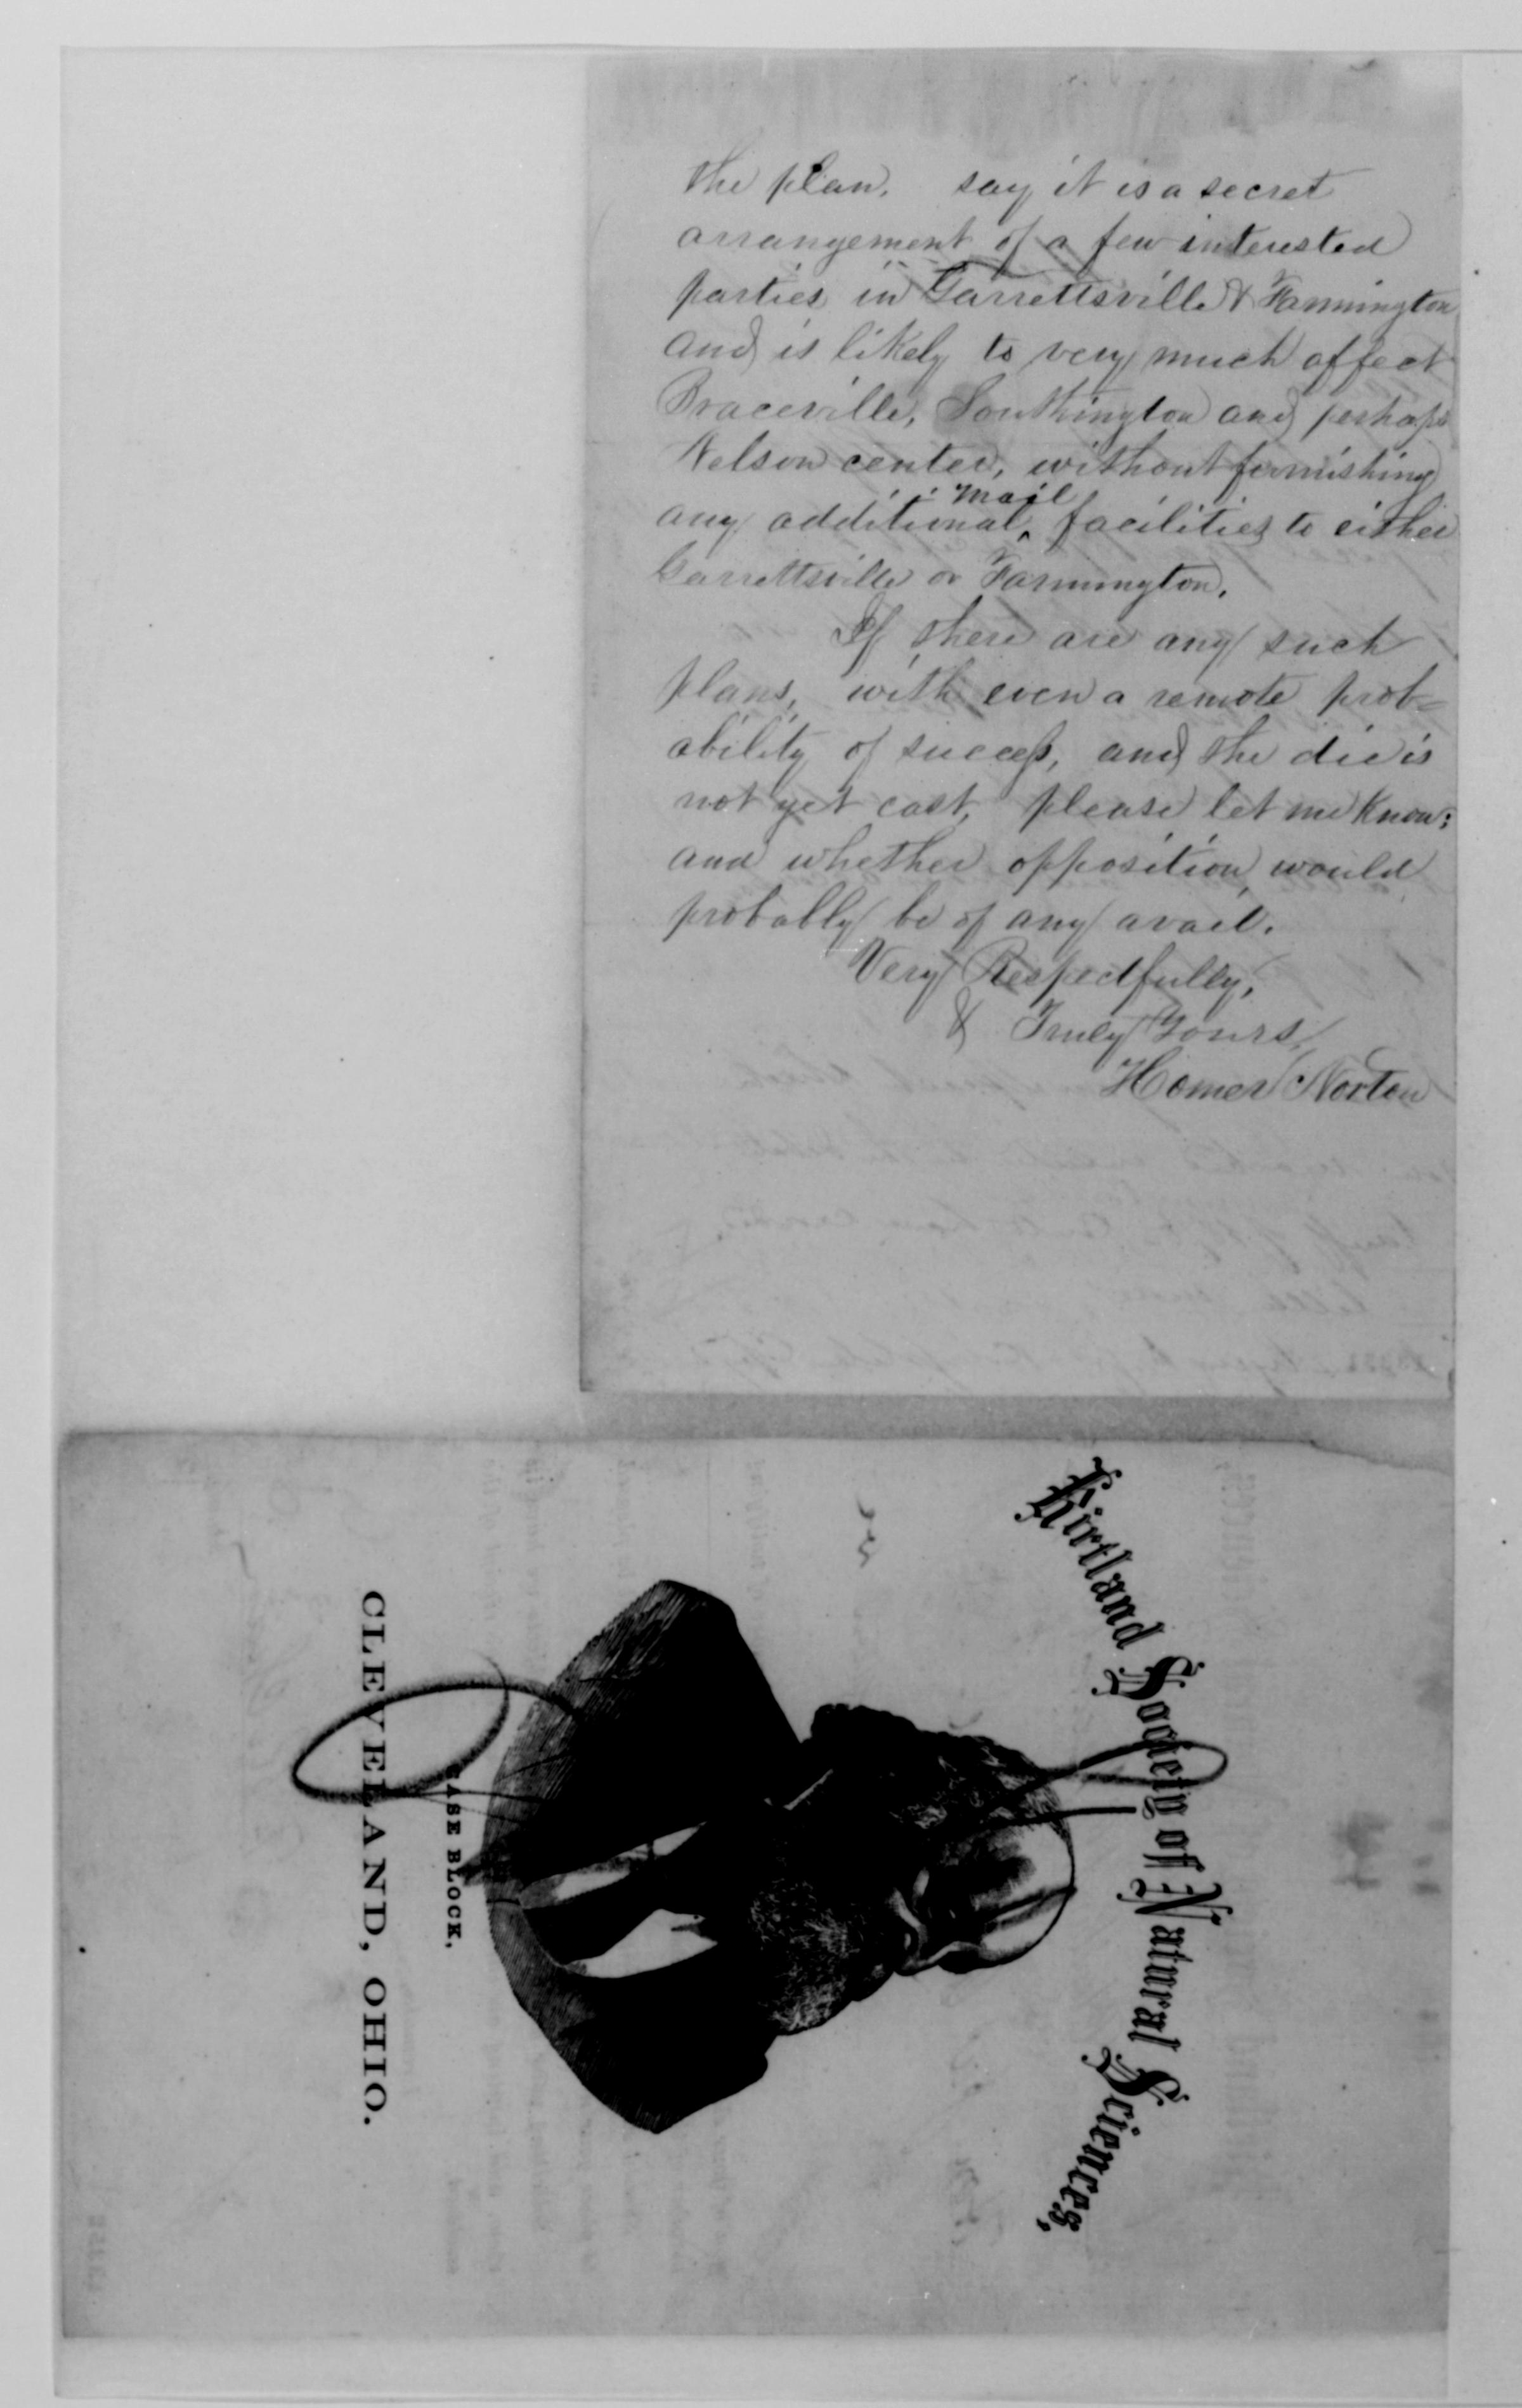 the plan, say it is a secret
arrangement of a few interested
parties in Garrettsville & Farmington
and is likely to very much affect
Braceville, Southington and perhaps
Nelson center, without furnishing
any additional mail facilities to either
Garrettsville or Farmington.
If there are any such
plans, with even a remote prob=
ability of success, and the die is
not yet cast, please let me know;
and whether opposition would
probably be of any avail.
Very Respectfully,
& Truly Yours,
Homer Norton
Kirtland Society of Natural Sciences,
CASE BLOCK,
CLEVELAND, OHIO.